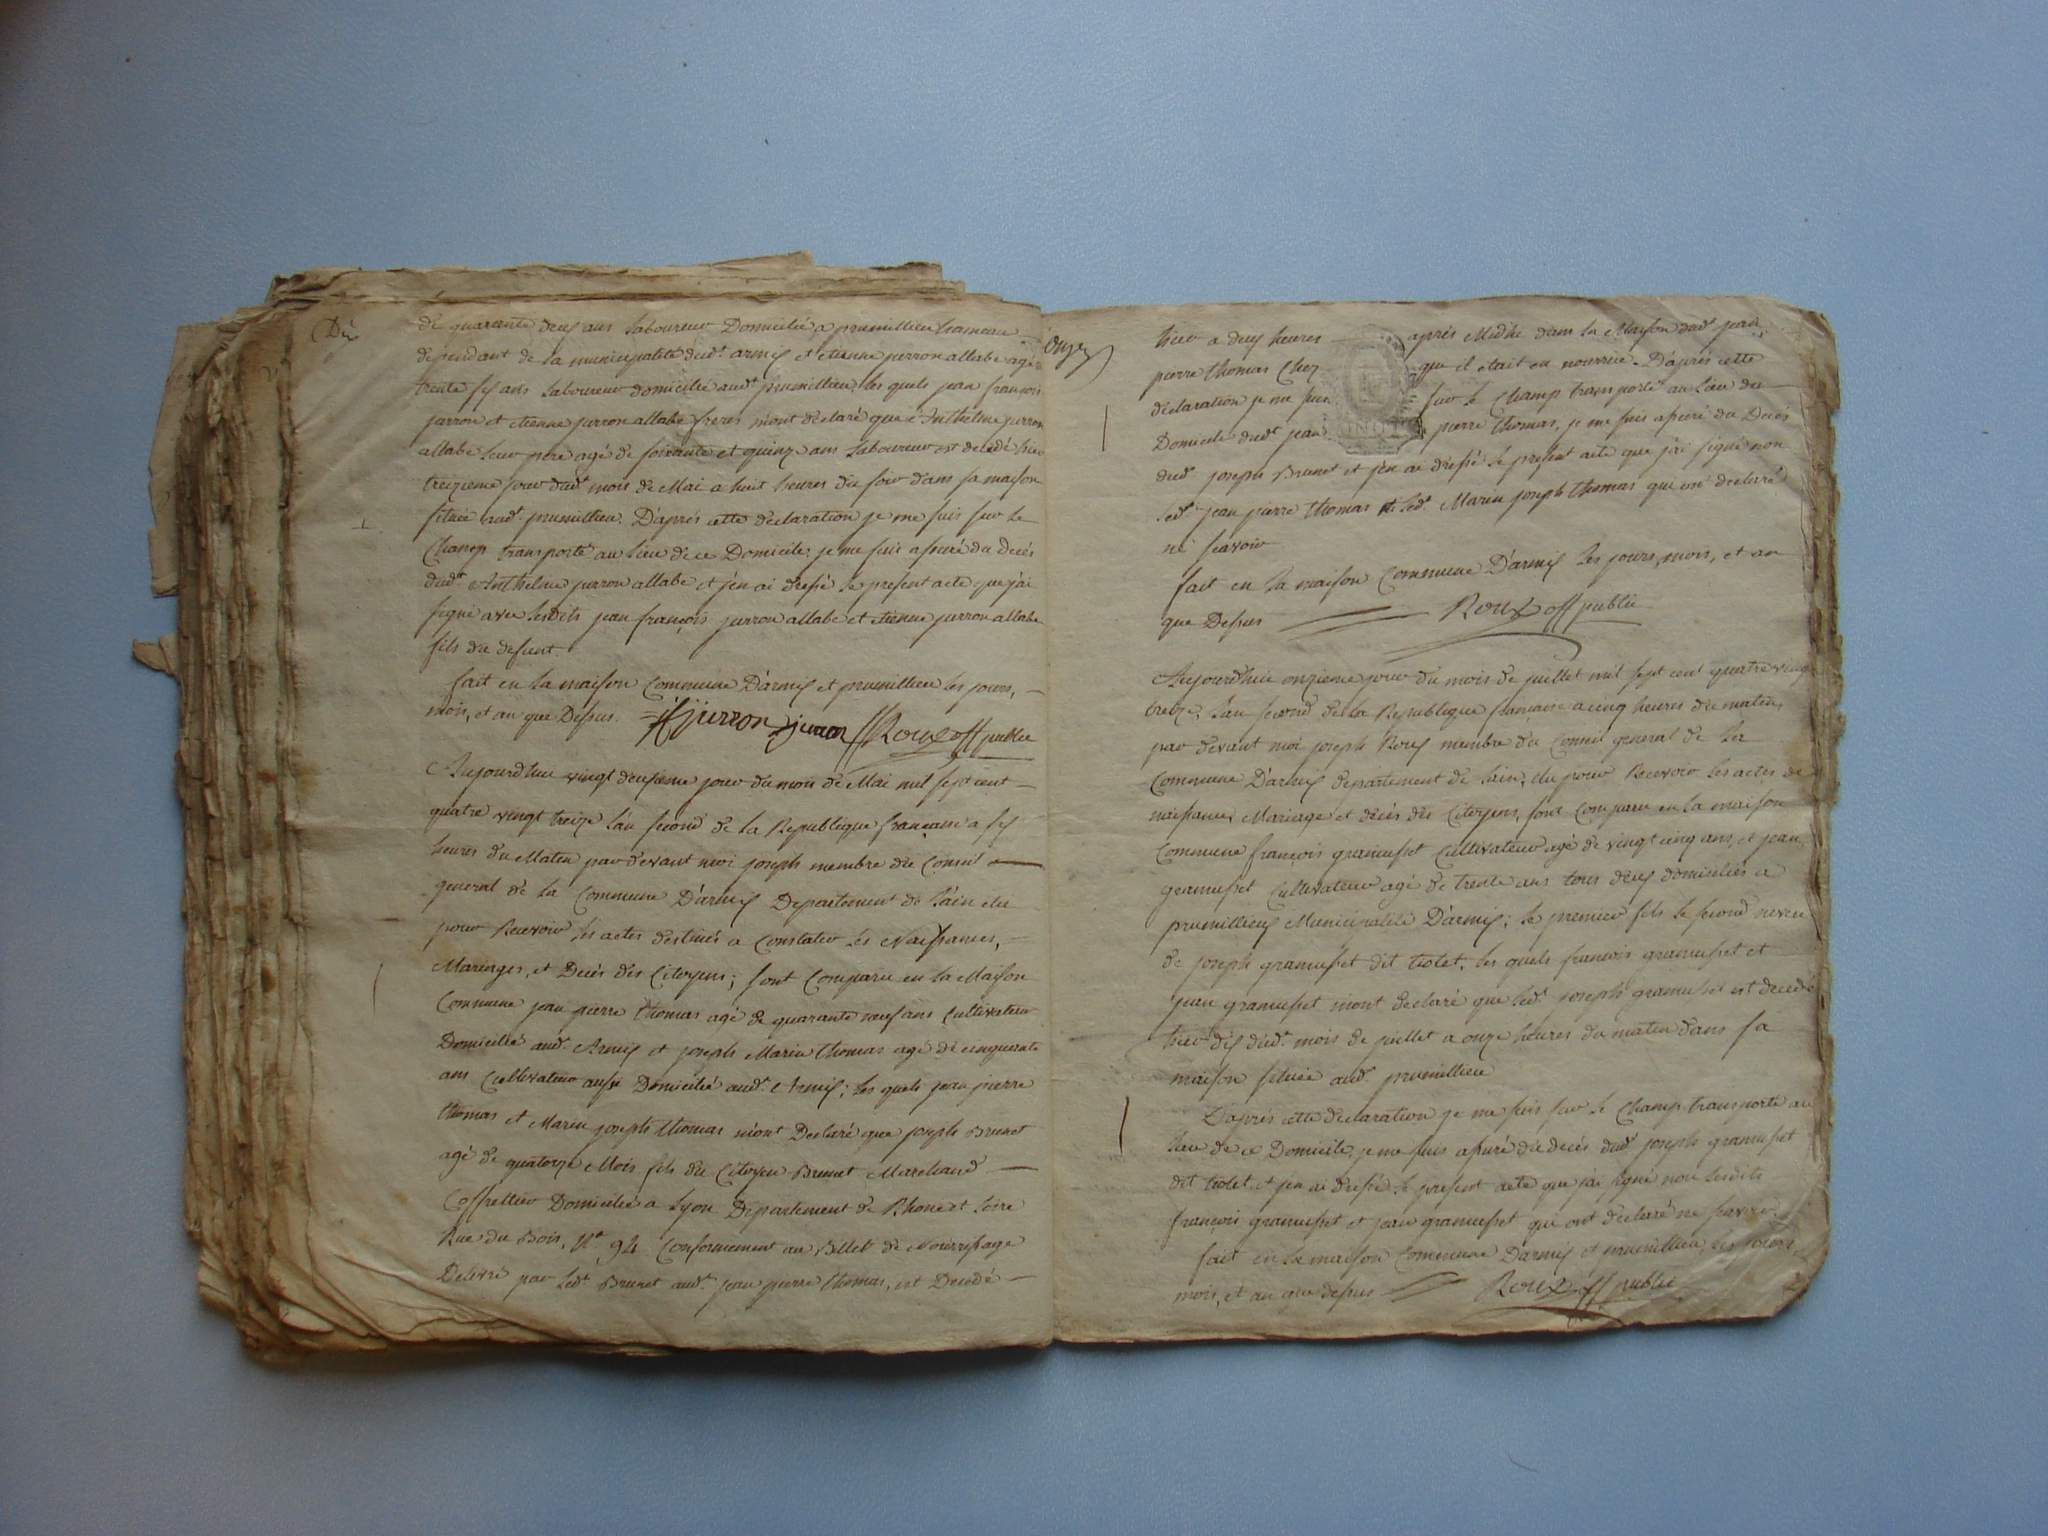 Dix
de quarante deux ans laboureur Domicilié a prumillieu hameau
dependant de la municipalité dudt. armix et etienne jurron allabe agé
trente six ans laboureur domicilié audt. prumillieu, les quels jean françois
jurron et etienne jurron allabe freres m'ont déclaré que Anthelme jurron
allabe leur pere agé de soixante et quinze ans laboureur est decedé hier
treizieme jour dudt. mois de Mai a huit heures du soir dans sa maison
située audt. prumillieu. D'aprés cette déclaration je me suis sur le
Champ transporté au lieu de ce Domicile; je me suis assuré du decés
dudt. Anthelme jurron allabe et j'en ai dressé le present acte que j'ai
signé avec lesdits jean françois jurron allabe et etienne jurron allabe
fils du defunt.
fait en la maison Commune D'armix et prumillieu les jours,
mois, et an que Dessus. jf jurron jurron Roux off public
Aujourd'hui vingt deuxieme jour du mois de Mai mil sept cent
quatre vingt treize l'an second de la Republique française a six
heures du Matin par devant moi joseph membre du Conseil
general de la Commune D'armix Departement de l'ain elu
pour Recevoir les actes destinés a Constater les Naissances,
Mariages, et Decés des Citoyens; sont Comparu en la Maison
Commune jean pierre thomas agé de quarante neuf ans Cultivateur
Domicilié audt. Armix et joseph Marin thomas agé de cinquante
ans Cultivateur aussi Domicilié audt. Armix; les quels jean pierre
thomas et Marin joseph thomas m'ont Declaré que joseph Brunet
agé de quatorze Mois fils du Citoyen Brunet Marchand
Coffretier Domicilié a Lyon Departement de Rhone et Loire
Rue du Bois, No. 94 Conformement au Billet de Nourrissage
Delivré par ledt. Brunet audt. jean pierre thomas, est Decedé
onze
hier a deux heures après Midhi dans la Maison dudt. jean
pierre thomas Chez que il était en nourrice. D'aprés cette
déclaration je me suis sur le Champ transporté au lieu du
Domicile dudt. jean pierre thomas, je me suis assuré du Decés
dudt. joseph Brunet et j'en ai dressé le present acte que j'ai signé non
ledt. jean pierre thomas ni ledt. Marin joseph thomas qui ont declaré
ne scavoir
fait en la maison Commune D'armix les jours, mois, et an
que Dessus Roux off public
Aujourd'hui onzieme jour du mois de juillet mil sept cent quatre vingt
treize, l'an second de la Republique française a cinq heures du matin,
par devant moi joseph Roux membre du Conseil general de la
Commune D'armix departement de l'ain, elu pour Recevoir les actes de
naissance, Mariage et décés des Citoyens, sont Comparu en la maison
Commune françois gramusset Cultivateur agé de vingt cinq ans, et jean
gramusset Cultivateur agé de trente ans tous deux domiciliés a
prumillieux Municipalité D'armix; le premier fils le second neveu
de joseph gramusset dit tiolet, les quels françois gramusset et
jean gramusset m'ont declaré que ledt. joseph gramusset est decedé
hier dix dudt. mois de juillet a onze heures du matin dans sa
maison située audt. prumillieu
D'aprés cette declaration je me suis sur le Champ transporté au
lieu de ce Domicile, je me suis assuré du decés dudt. joseph gramusset
dit tiolet et j'en ai dressé le present acte que j'ai signé non lesdits
françois gramusset et jean gramusset qui ont declaré ne scavoir.
fait en la maison Commune D'armix et prumillieu, les jours,
mois, et an que dessus Roux off public